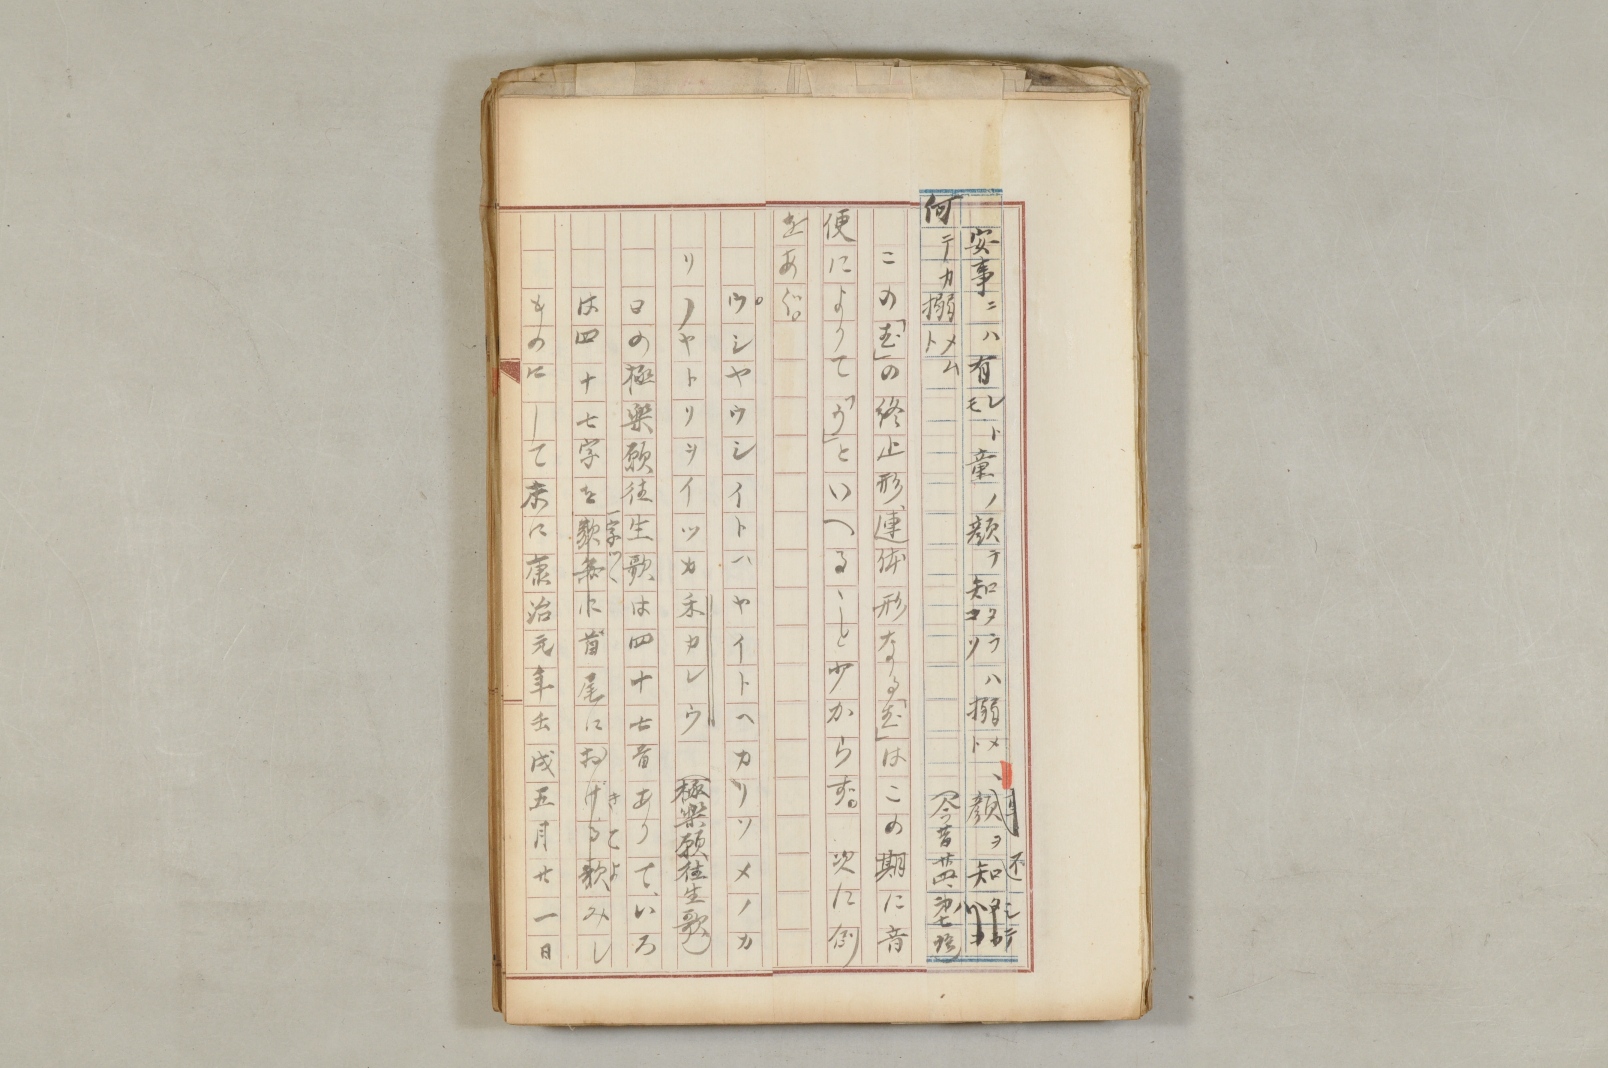 安事ニハ有レモト童ノ顔テ知タラコソハ搦メト、顔ヲ知
何テカ搦メムト（今昔廿四、第七
この「む」の終止形連体形なる「む」はこの期に音
便によりて「う」といへること少からず。次に例
をあぐ。
ウシヤウシイトハヤイトヘカリソメノカ
リノヤトリヲイツカ禾カレウ（極樂願往生歌）
この極樂願往生歌は四十七音ありて、いろ
は四十七字を一字づゝ首尾におきてよみし
ものにして末に康治元年壬戌五月廿一日